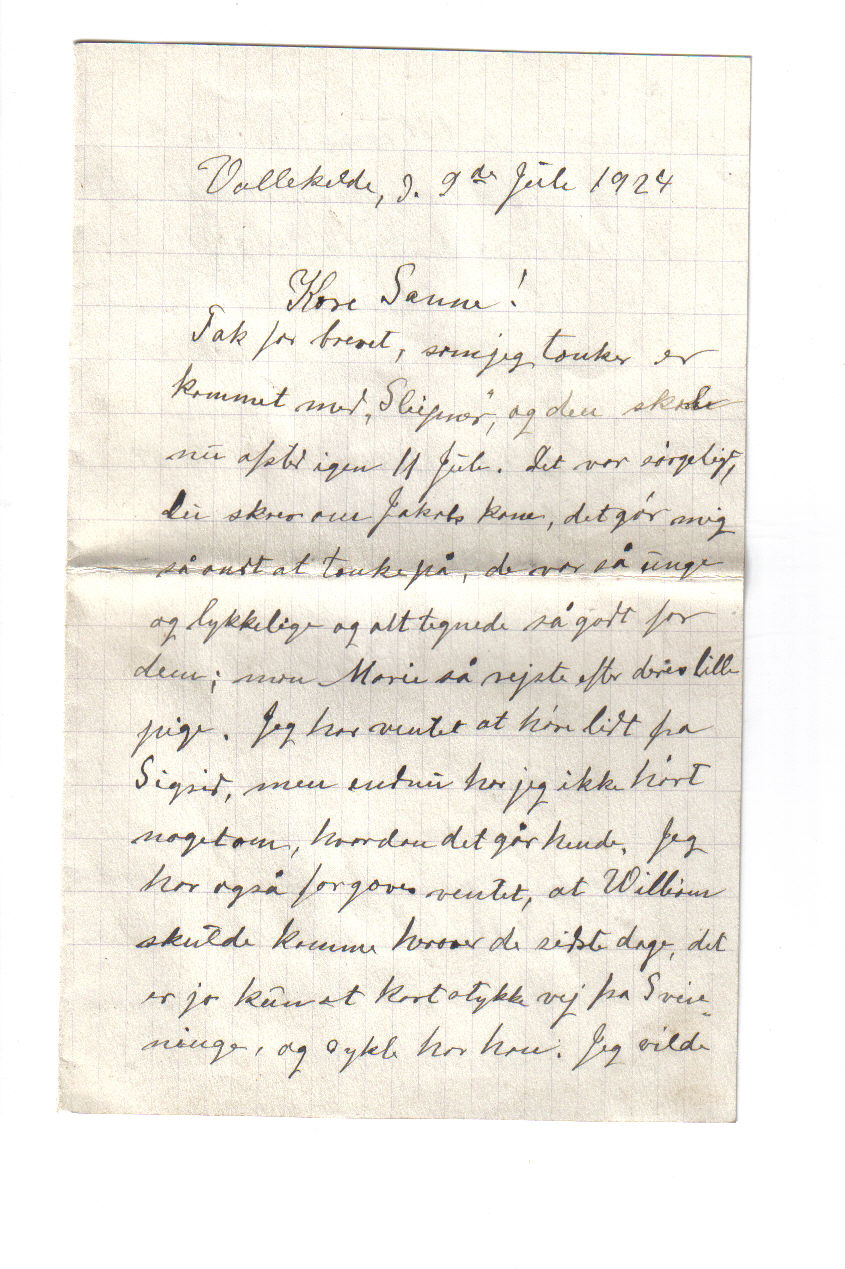 Vallekilde, d. 9de Juli 1924
Kære Sanne!
Tak for brevet, som jeg tænker er
kommet med „Sleipner", og den skal
nu afsted igen 11 Juli. Det var sørgeligt,
du skrev om Jakobs kone, det gør mig
så ondt at tænke på, de var så unge
og lykkelige og alt tegnede så godt for
dem; mon Marie så rejste efter deres lille
pige. Jeg har ventet at høre lidt fra
Sigrid, men endnu har jeg ikke hørt
noget om, hvordan det går hende. Jeg
har også forgæves ventet, at William
skulde komme herover de sidste dage, det
er jo kun et kort stykke vej fra Svin-
ninge, og cykle har han. Jeg vilde